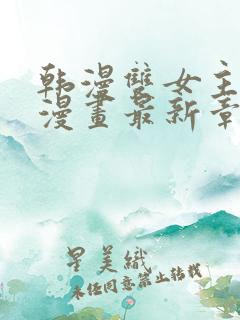 韩漫雙女主
漫畫最新章
星美織
未经同意禁止转载